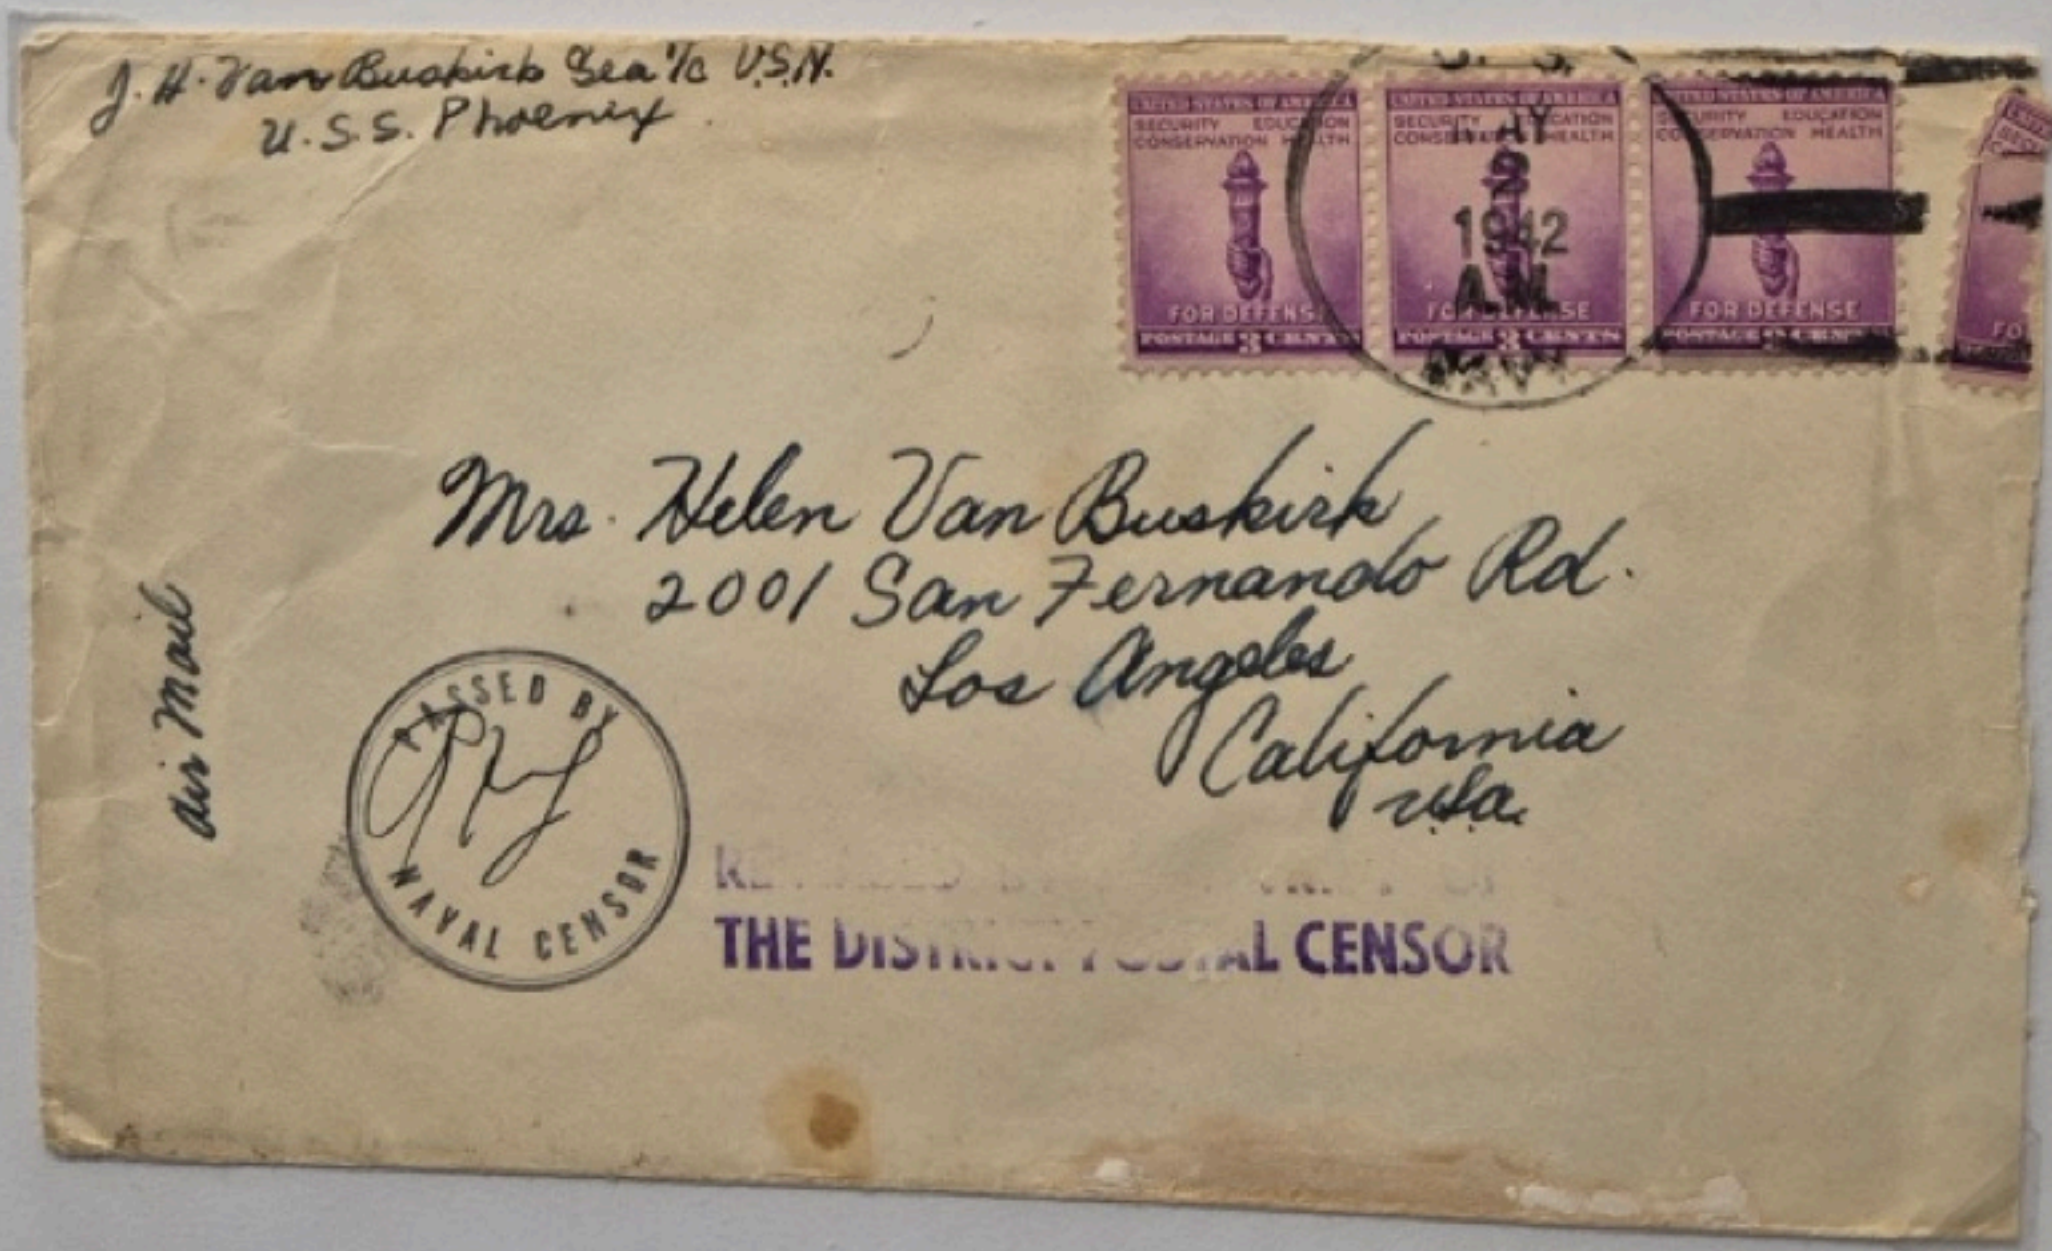 J. H. Van Buskirk Sea 1/c U.S.N.
U.S.S. Phoenix
UNITED STATES OF AMERICA
SECURITY EDUCATION
CONSERVATION HEALTH
FOR DEFENSE
POSTAGE 3 CENTS
UNITED STATES OF AMERICA
SECURITY EDUCATION
CONSERVATION HEALTH
FOR DEFENSE
POSTAGE 3 CENTS
UNITED STATES OF AMERICA
SECURITY EDUCATION
CONSERVATION HEALTH
FOR DEFENSE
POSTAGE 3 CENTS
FO
U. S.
MAY
2
1942
A.M.
NAVY
Mrs. Helen Van Buskirk
2001 San Fernando Rd.
Los Angeles
California
U.S.a.
air Mail
PASSED BY
NAVAL CENSOR
THE DISTRICT POSTAL CENSOR